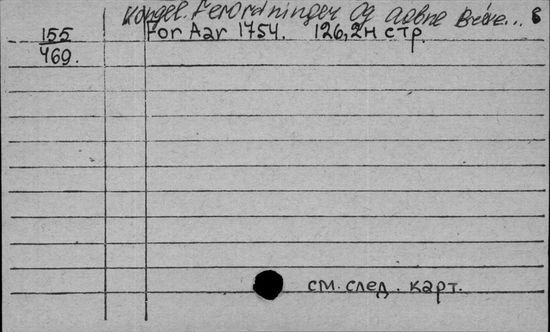 Kongel. Ferordninger og aabne Breve... 6
155 For Aar 1754. 126,2н стр.
469.
см. след. карт.